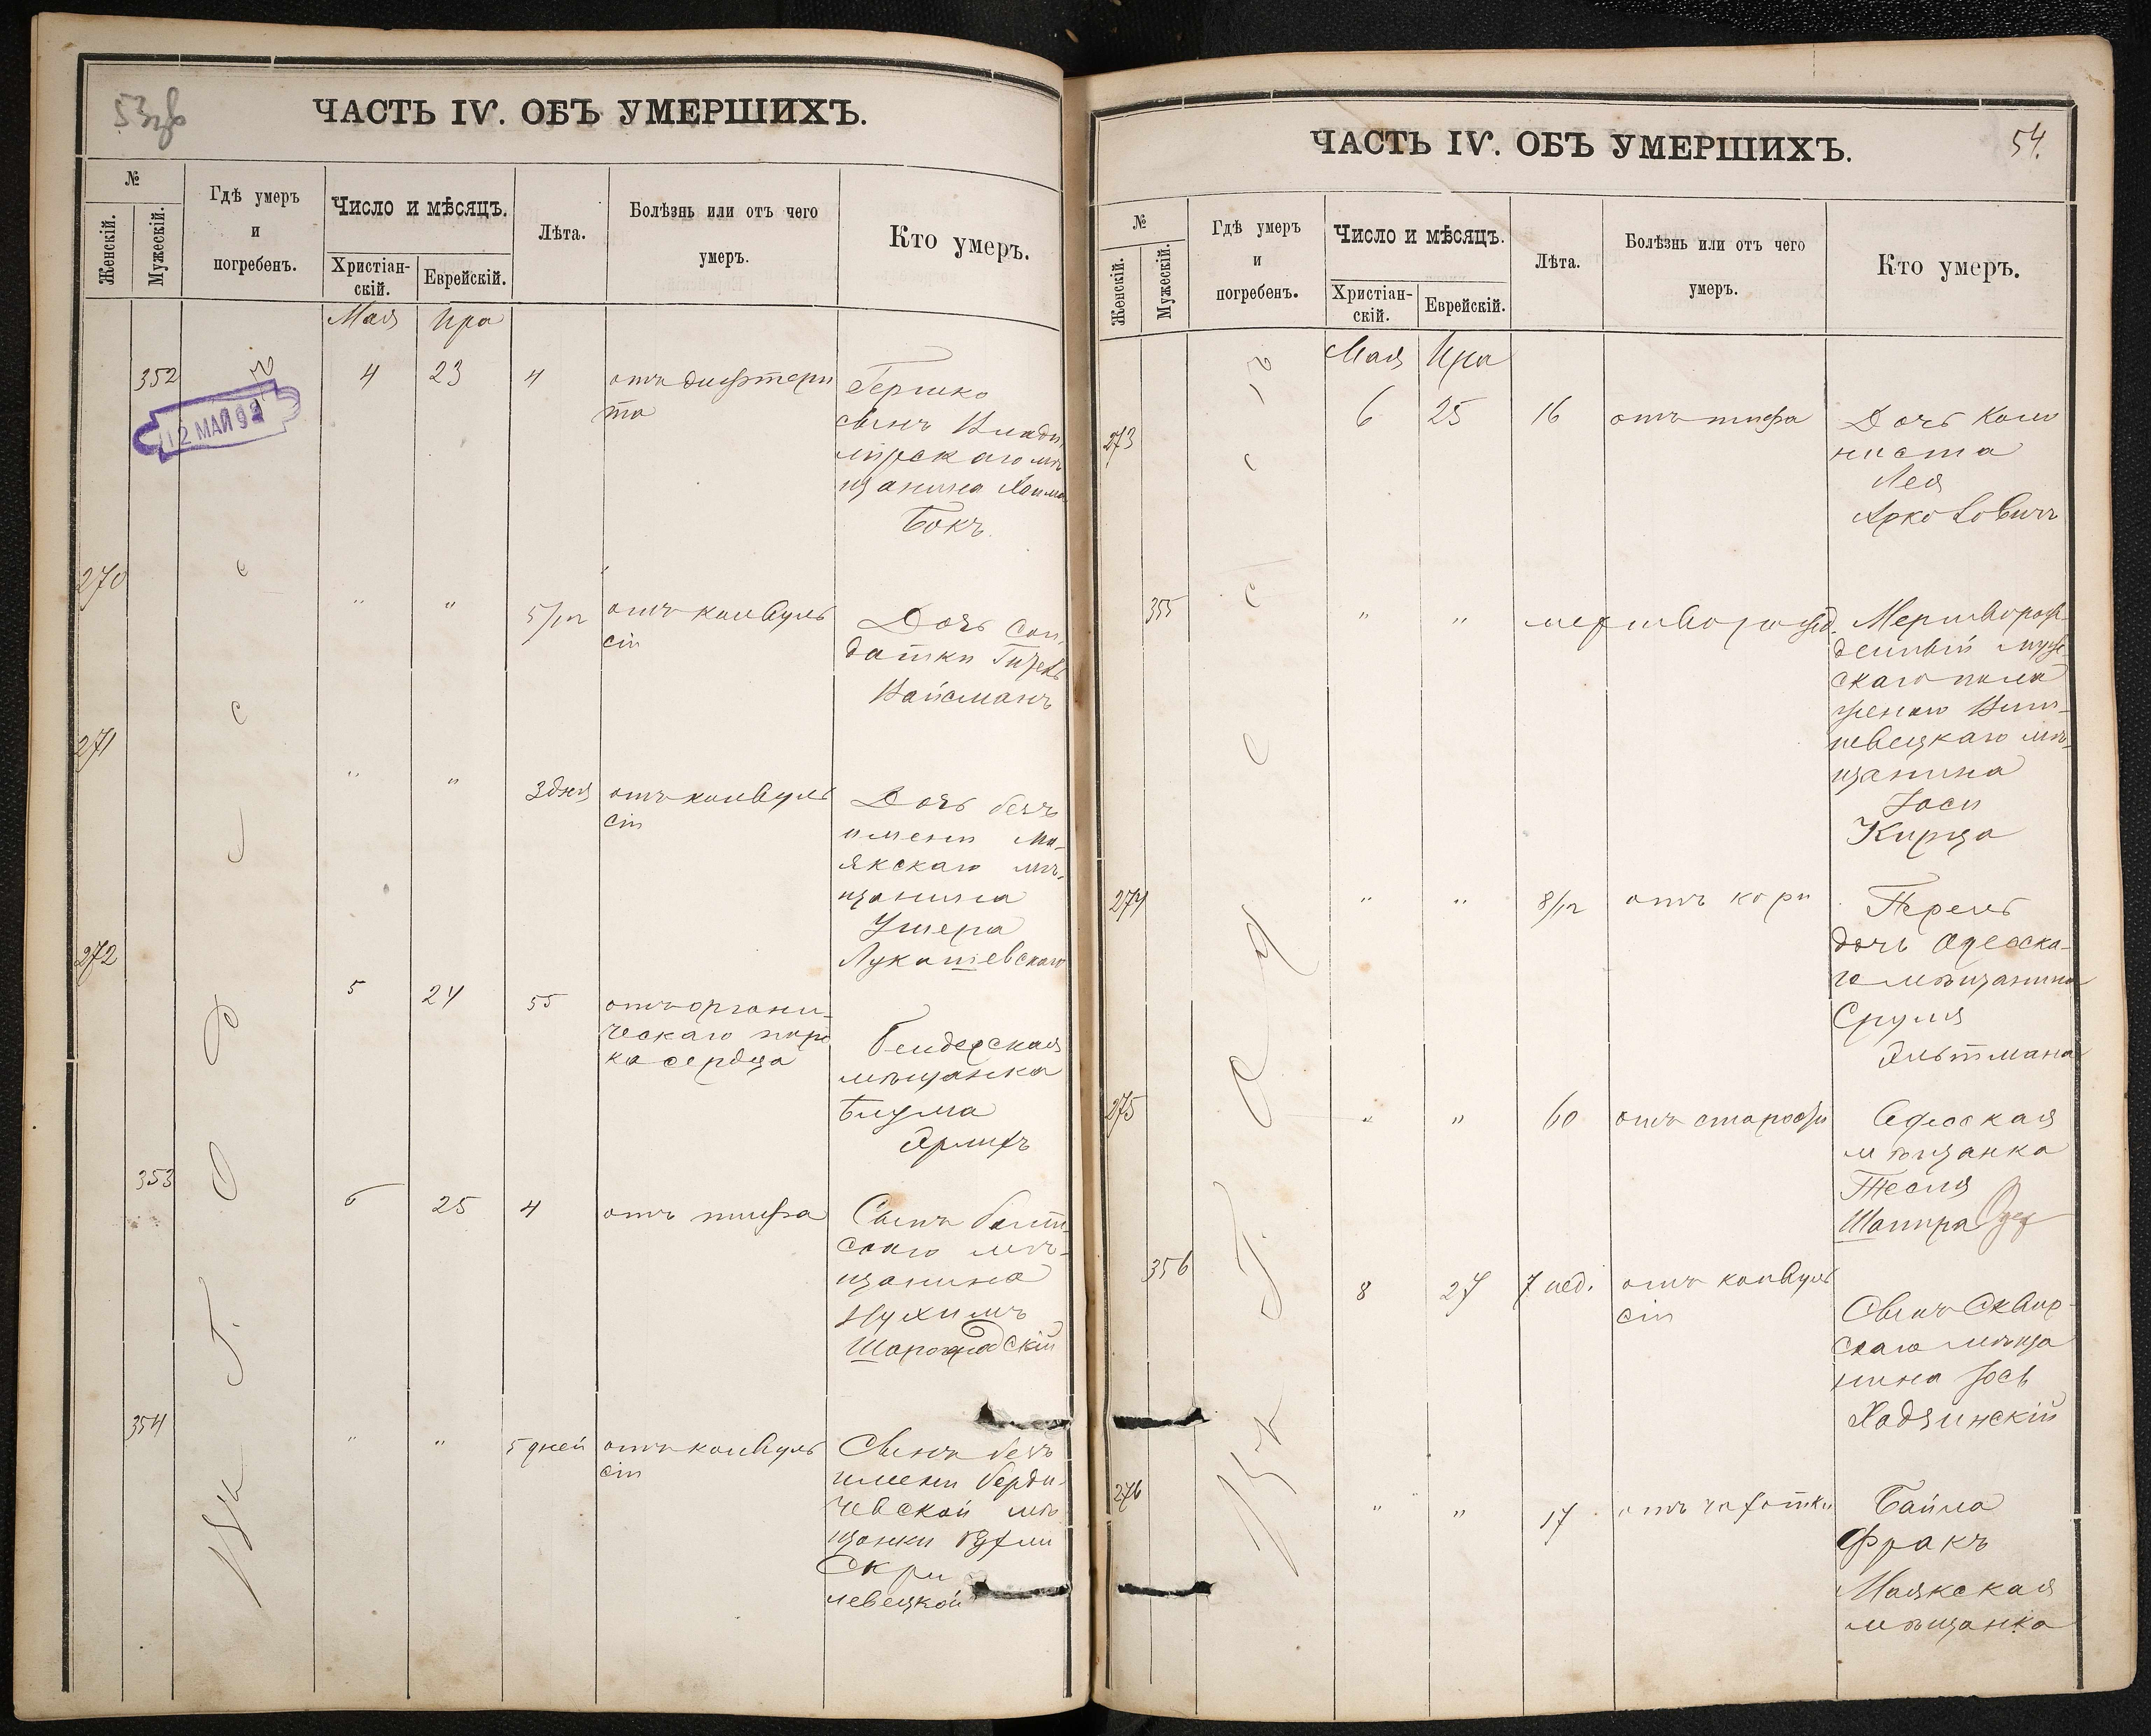 53
ЧАСТЬ IV. ОБЪ УМЕРШИХЪ.
№
Женскій.
Мужескій.
Гдѣ умеръ
и
погребенъ.
Число и мѣсяцъ.
Христіан-
скій.
Еврейскій.
Лѣта.
Болѣзнь или отъ чего
умеръ.
Кто умеръ.
Мая Ира
352 4 23 4 отъ дифтери
та
12 МАЙ 92
Гершко
сынъ Влади
мірскаго мѣ
щанина Хаима
Бокъ.
270 " " 5/12 отъ конвуль
сіи
Дочь сол
датки
Вайсманъ
271 " " 3 дня отъ конвуль
сіи
Дочь безъ
имени Ма-
якскаго мѣ-
щанина
Ушера
Лукашевскаго
272 5 24 55 отъ органи-
ческаго поро
ка сердца
Бендерская
мѣщанка
Блума
353 6 25 4 отъ тифа
Сынъ балт-
скаго мѣ-
щанина
Нухимъ
Шарогродскій
354 " " 5 дней отъ конвуль
сіи
Сынъ безъ
имени Берди-
чевской мѣ
щанки
Скри
левецкой
54.
ЧАСТЬ IV. ОБЪ УМЕРШИХЪ.
№
Женскій.
Мужескій.
Гдѣ умеръ
и
погребенъ.
Число и мѣсяцъ.
Христіан-
скій.
Еврейскій.
Лѣта.
Болѣзнь или отъ чего
умеръ.
Кто умеръ.
Мая Ира
273 6 25 16 отъ тифа
Дочь коло
ниста
Лея
Арковичъ
355 " " мертворожд.
Мертворож-
денный муже-
скаго пола
женою Виш-
невецкаго мѣ-
щанина
Іоси
Кирца
274 " " 8/12 отъ кори
Перель
дочь Одесска-
го мѣщанина
Сруля
Эльтмана
275 " " 60 отъ старости
Одесская
мѣщанка
Тесля
Шапира
356 8 27 7 нед. отъ конвуль
сіи
Сынъ Сквир-
скаго мѣща
нина Іось
Ходзинскій
276 " " 17 отъ чахотки
Байла
Фракъ
Маякская
мѣщанка